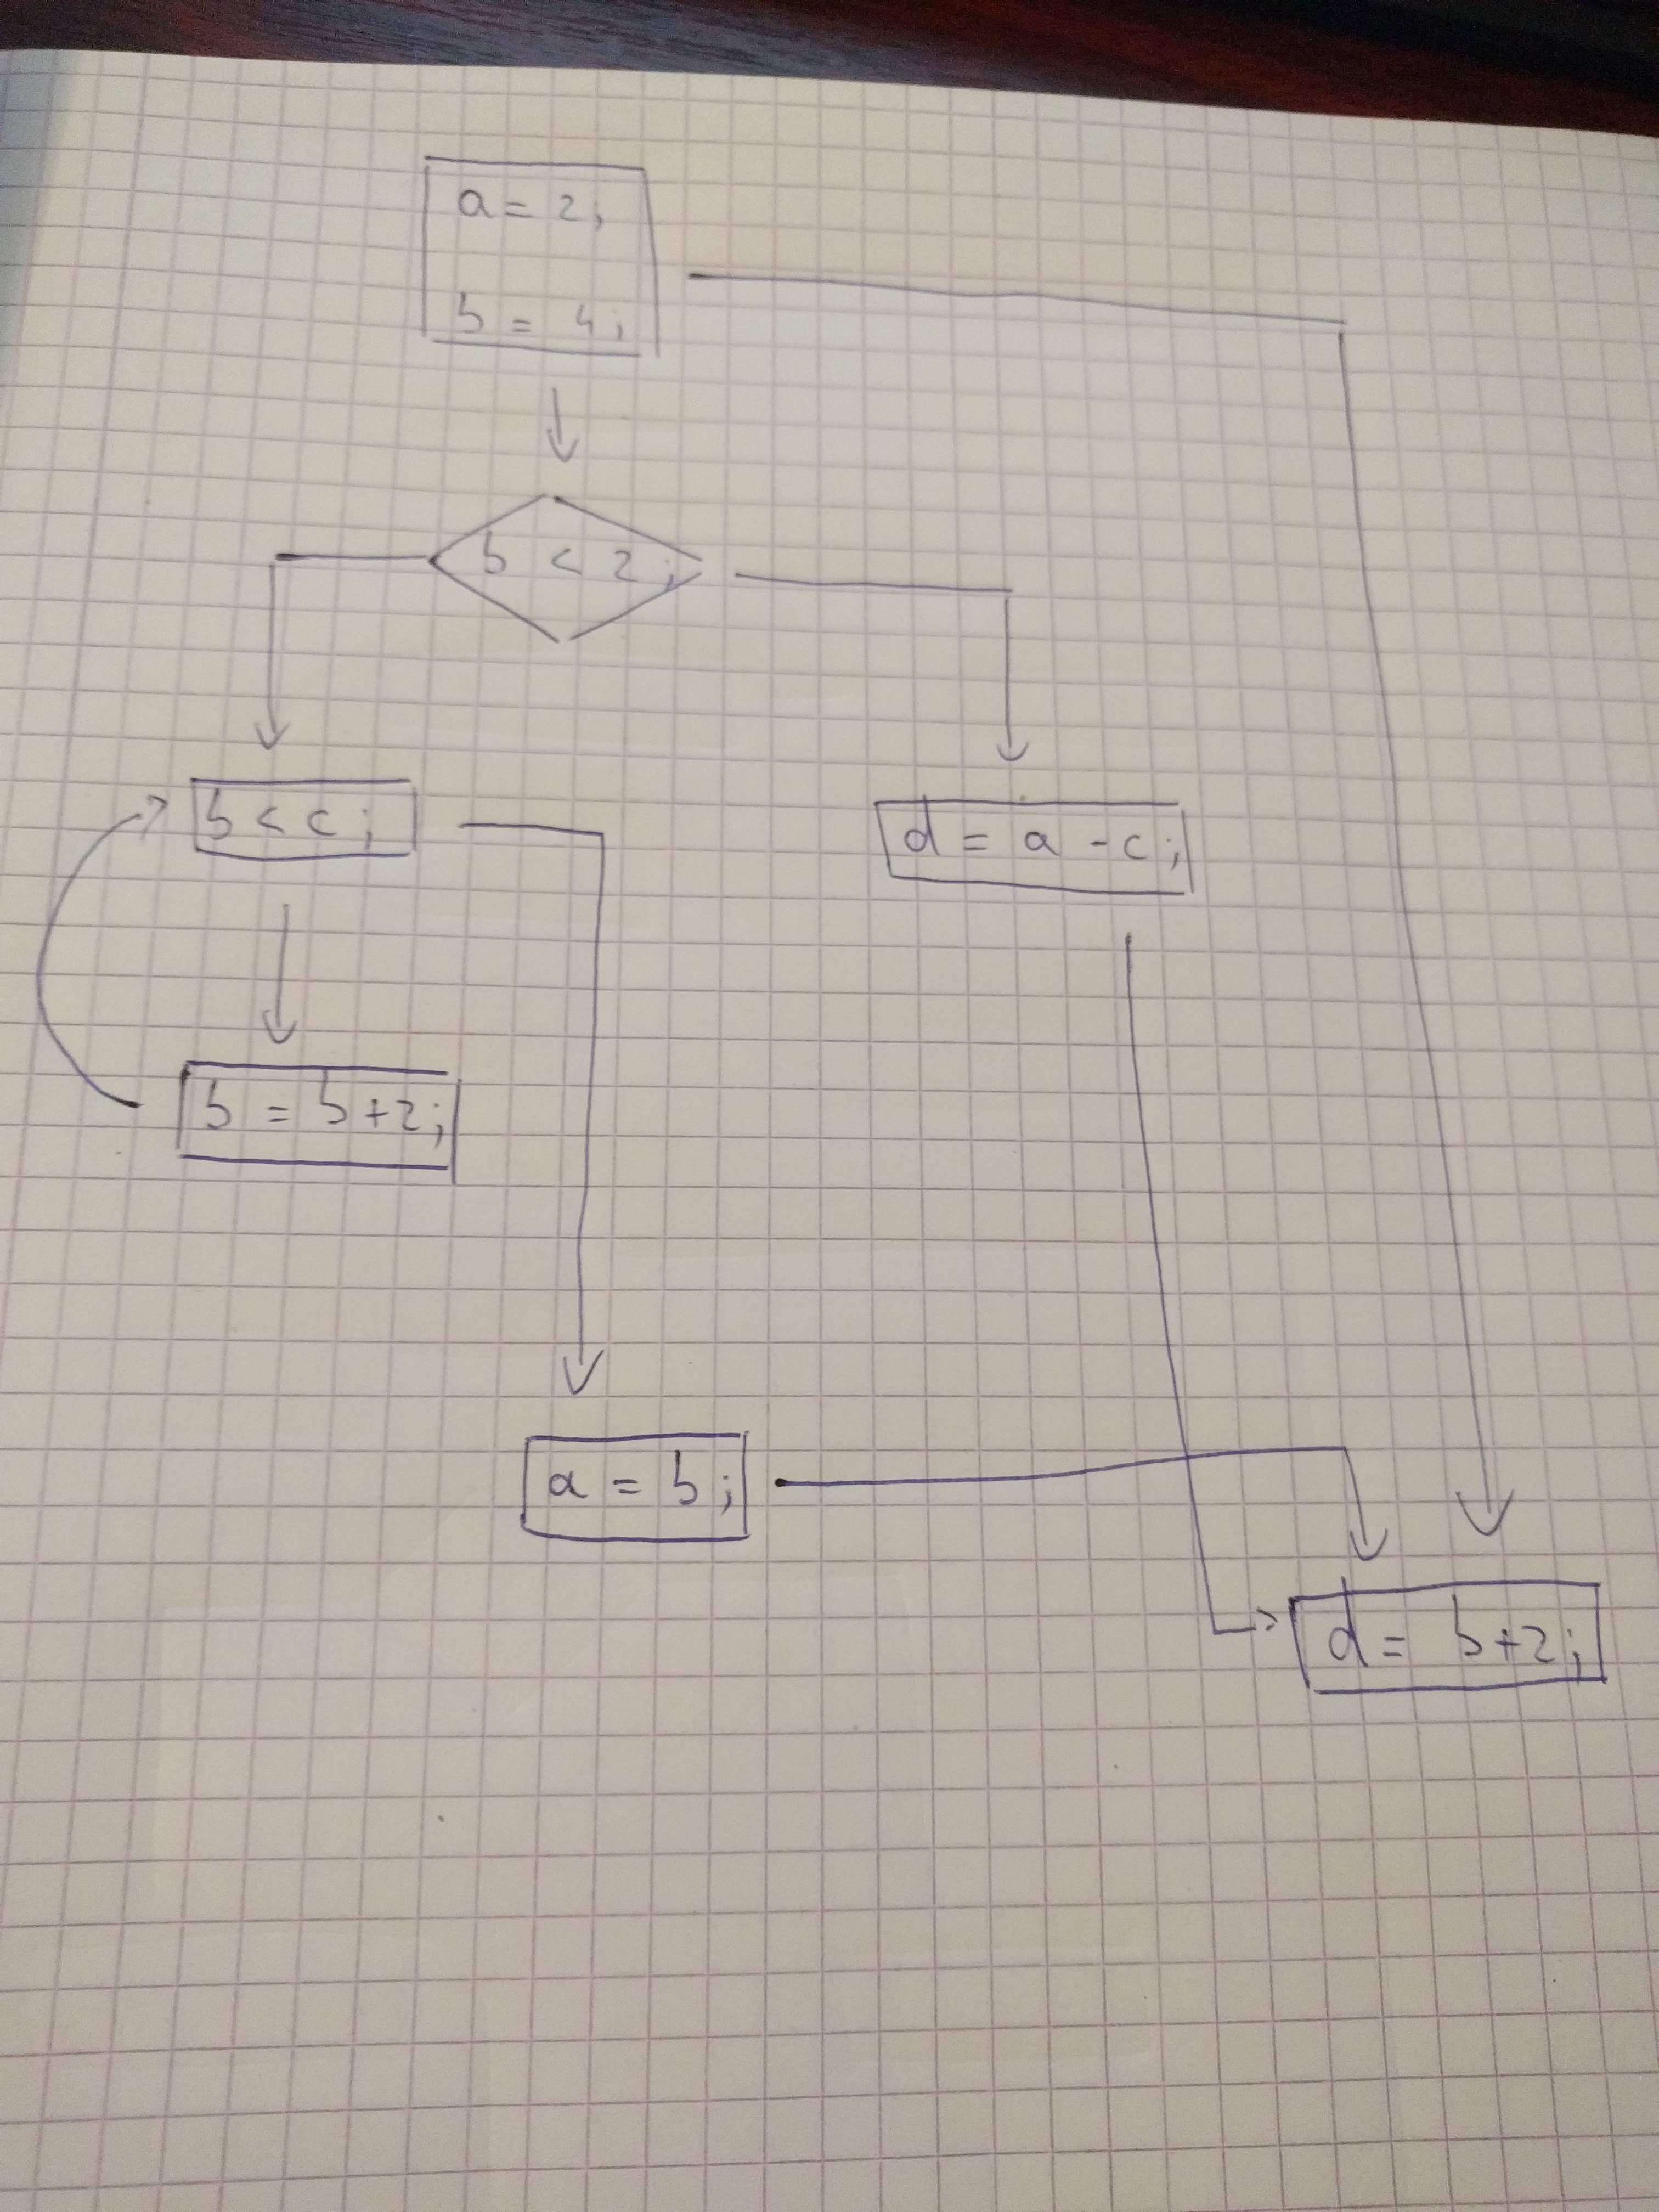 a = 2;
b = 4;
b < 2;
b < c;
d = a - c;
b = b + 2;
a = b;
d = b + 2;